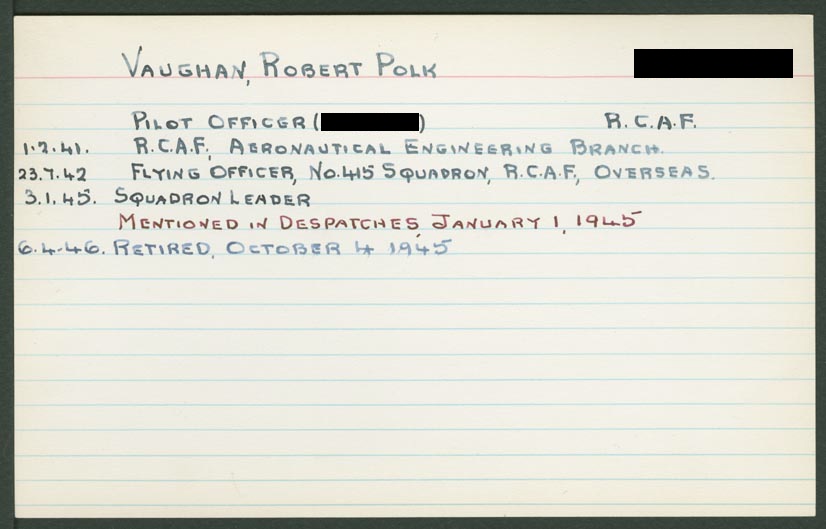 VAUGHAN, ROBERT POLK
PILOT OFFICER ( ) R.C.A.F.
1.2.41. R.C.A.F., AERONAUTICAL ENGINEERING BRANCH.
23.7.42 FLYING OFFICER, NO.415 SQUADRON, R.C.A.F., OVERSEAS.
3.1.45. SQUADRON LEADER
MENTIONED IN DESPATCHES, JANUARY 1, 1945
6.4.46. RETIRED, OCTOBER 4 1945